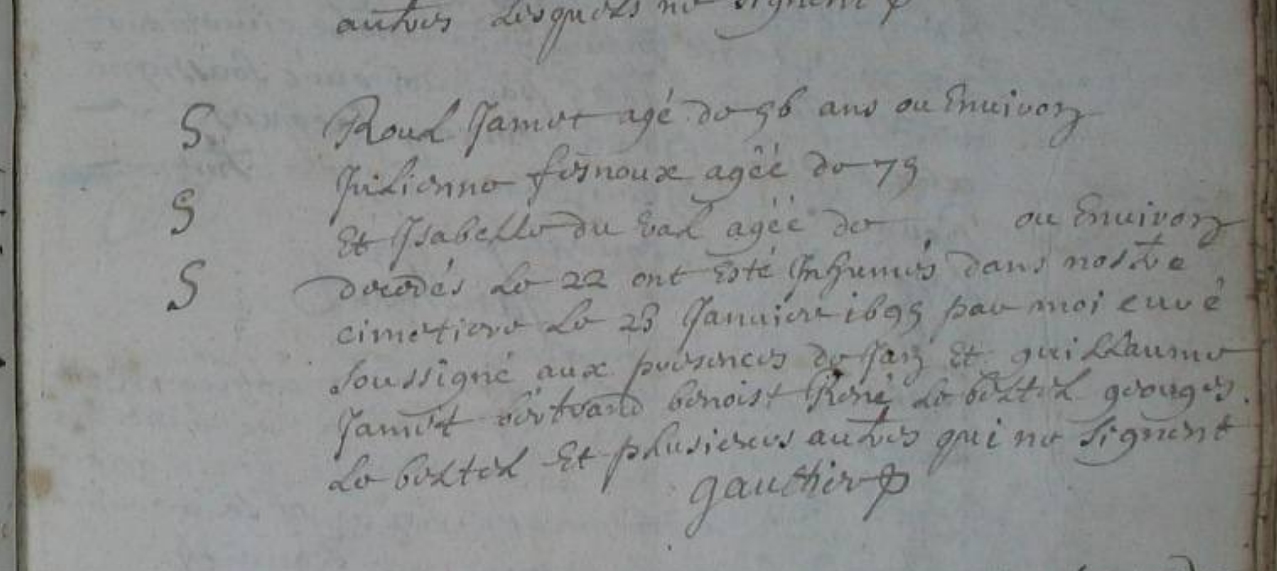 autres lesquels ne signent p
S Roul Jamet agé de 56 ans ou Enuiron
Julienne fesnoux agéé de 75
S Et Jsabelle du val agéé de ou Enuiron
S decedés le 22 ont esté Jnhumés dans nostre
cimetiere le 23 Januier 1695 par moi curé
soussigné aux presences de Jan Et guillaume
Jamet bertrand benoist René le beltel georges
le beltel Et plusieurs autres qui ne signent
gautier p